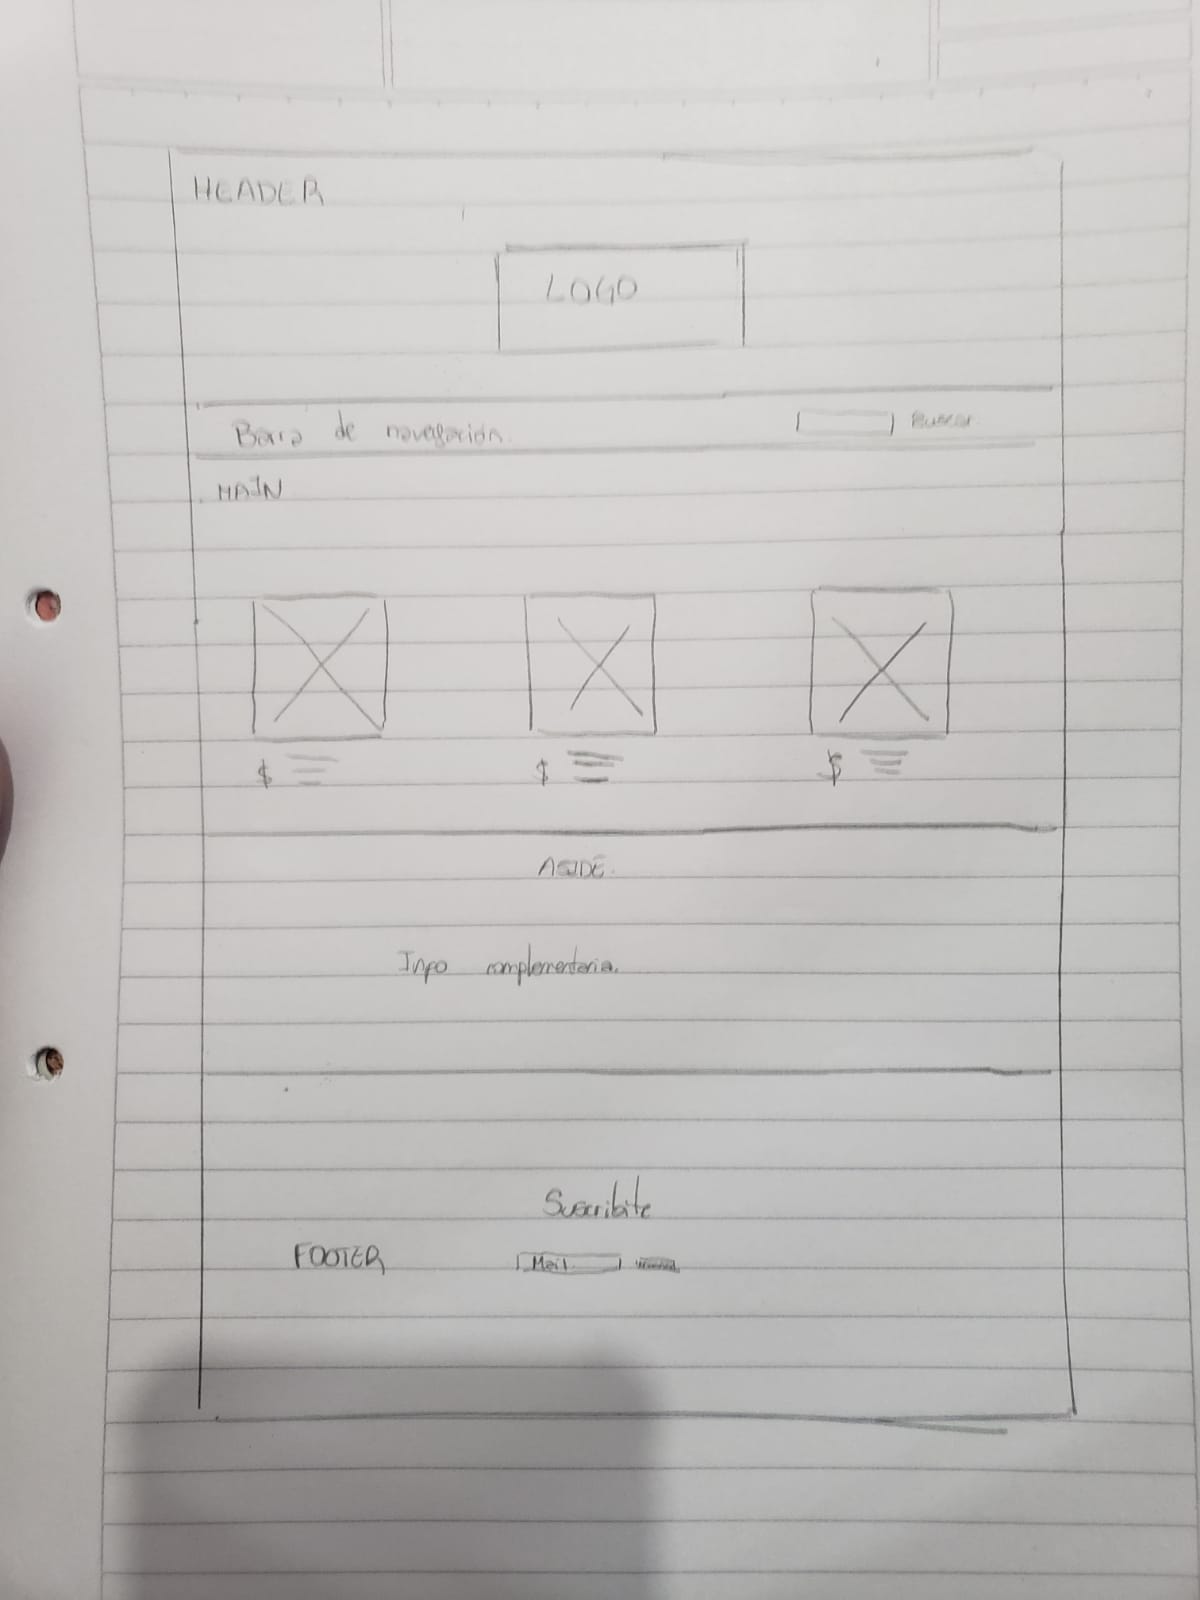 HEADER
LOGO
Barra de navegación. Buscar
MAIN
$ $ $
ASIDE.
Info complementaria.
Suscribite
FOOTER Mail.